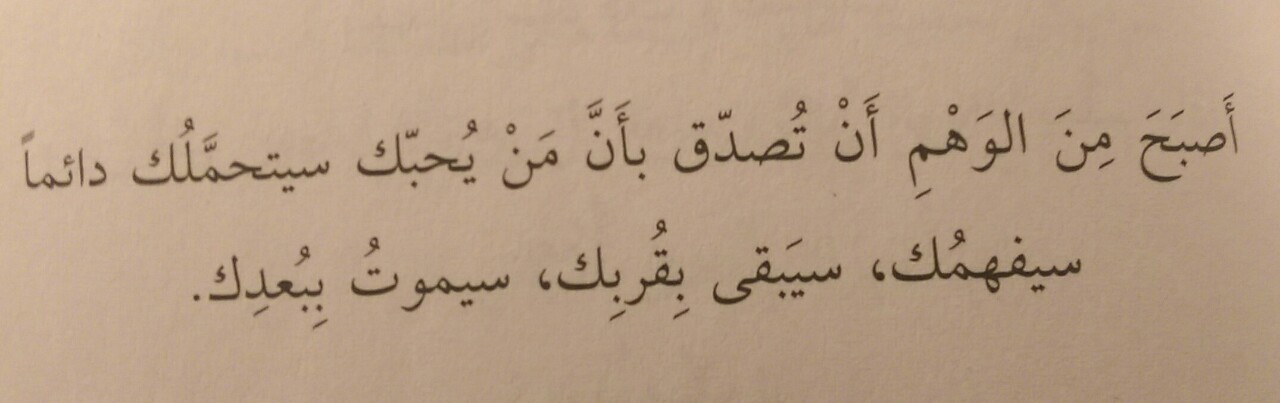 أَصبَحَ مِنَ الوَهْمِ أَنْ تُصدّق بأَنَّ مَنْ يُحبّك سيتحمَّلُك دائماً
سيفهمُك، سيَبقى بِقُربِك، سيموتُ بِبُعدِك.